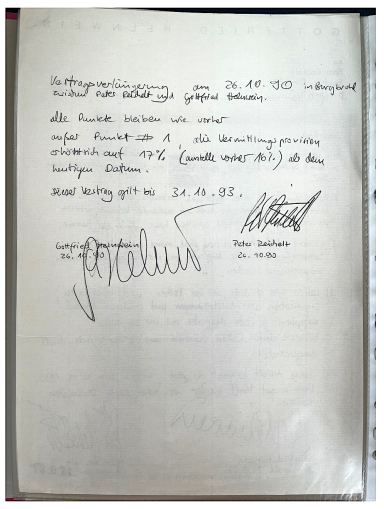 GOTTFRIED HELNWEIN
Vertragsverlängerung am 26.10.90 in Burgbrohl
zwischen Peter Reichelt und Gottfried Helnwein.
alle Punkte bleiben wie vorher
außer Punkt 1, die Vermittlungsprovision
erhöht sich auf 17% (anstelle vorher 16%) ab dem
heutigen Datum.
Dieser Vertrag gilt bis 31.10.93.
Gottfried Helnwein
26.10.90
Peter Reichelt
26.10.90